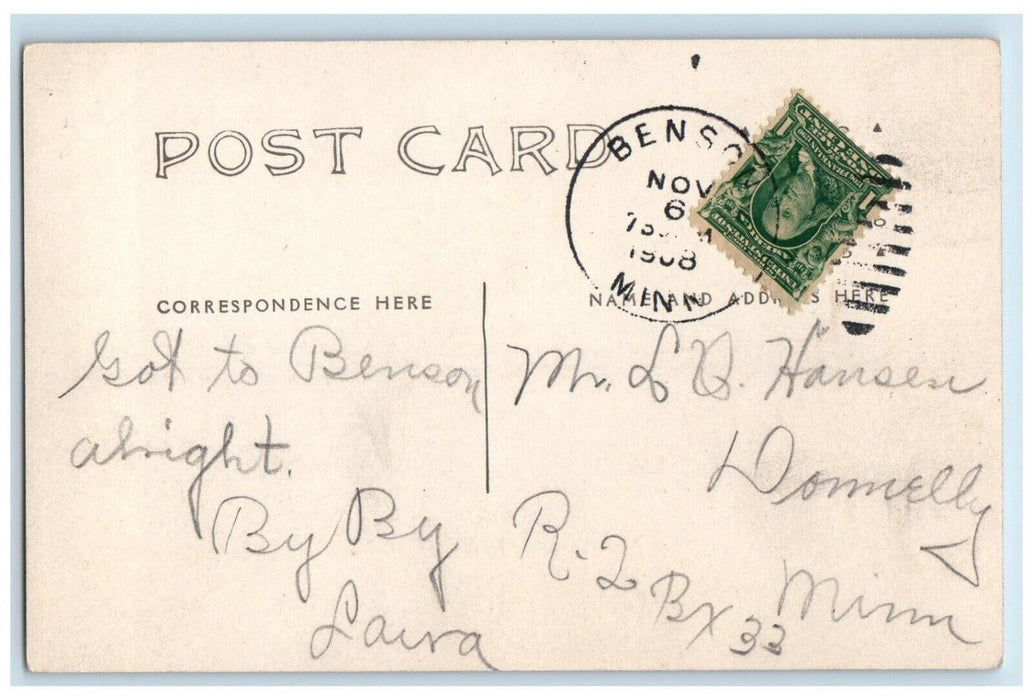 POST CARD
BENSON
NOV
6
1908
MINN
CORRESPONDENCE HERE
Got to Benson
alright.
By By
Laura
NAME AND ADDRESS HERE
Mr. L
Hansen
Donnelly
R. 2
Bx 33 Minn